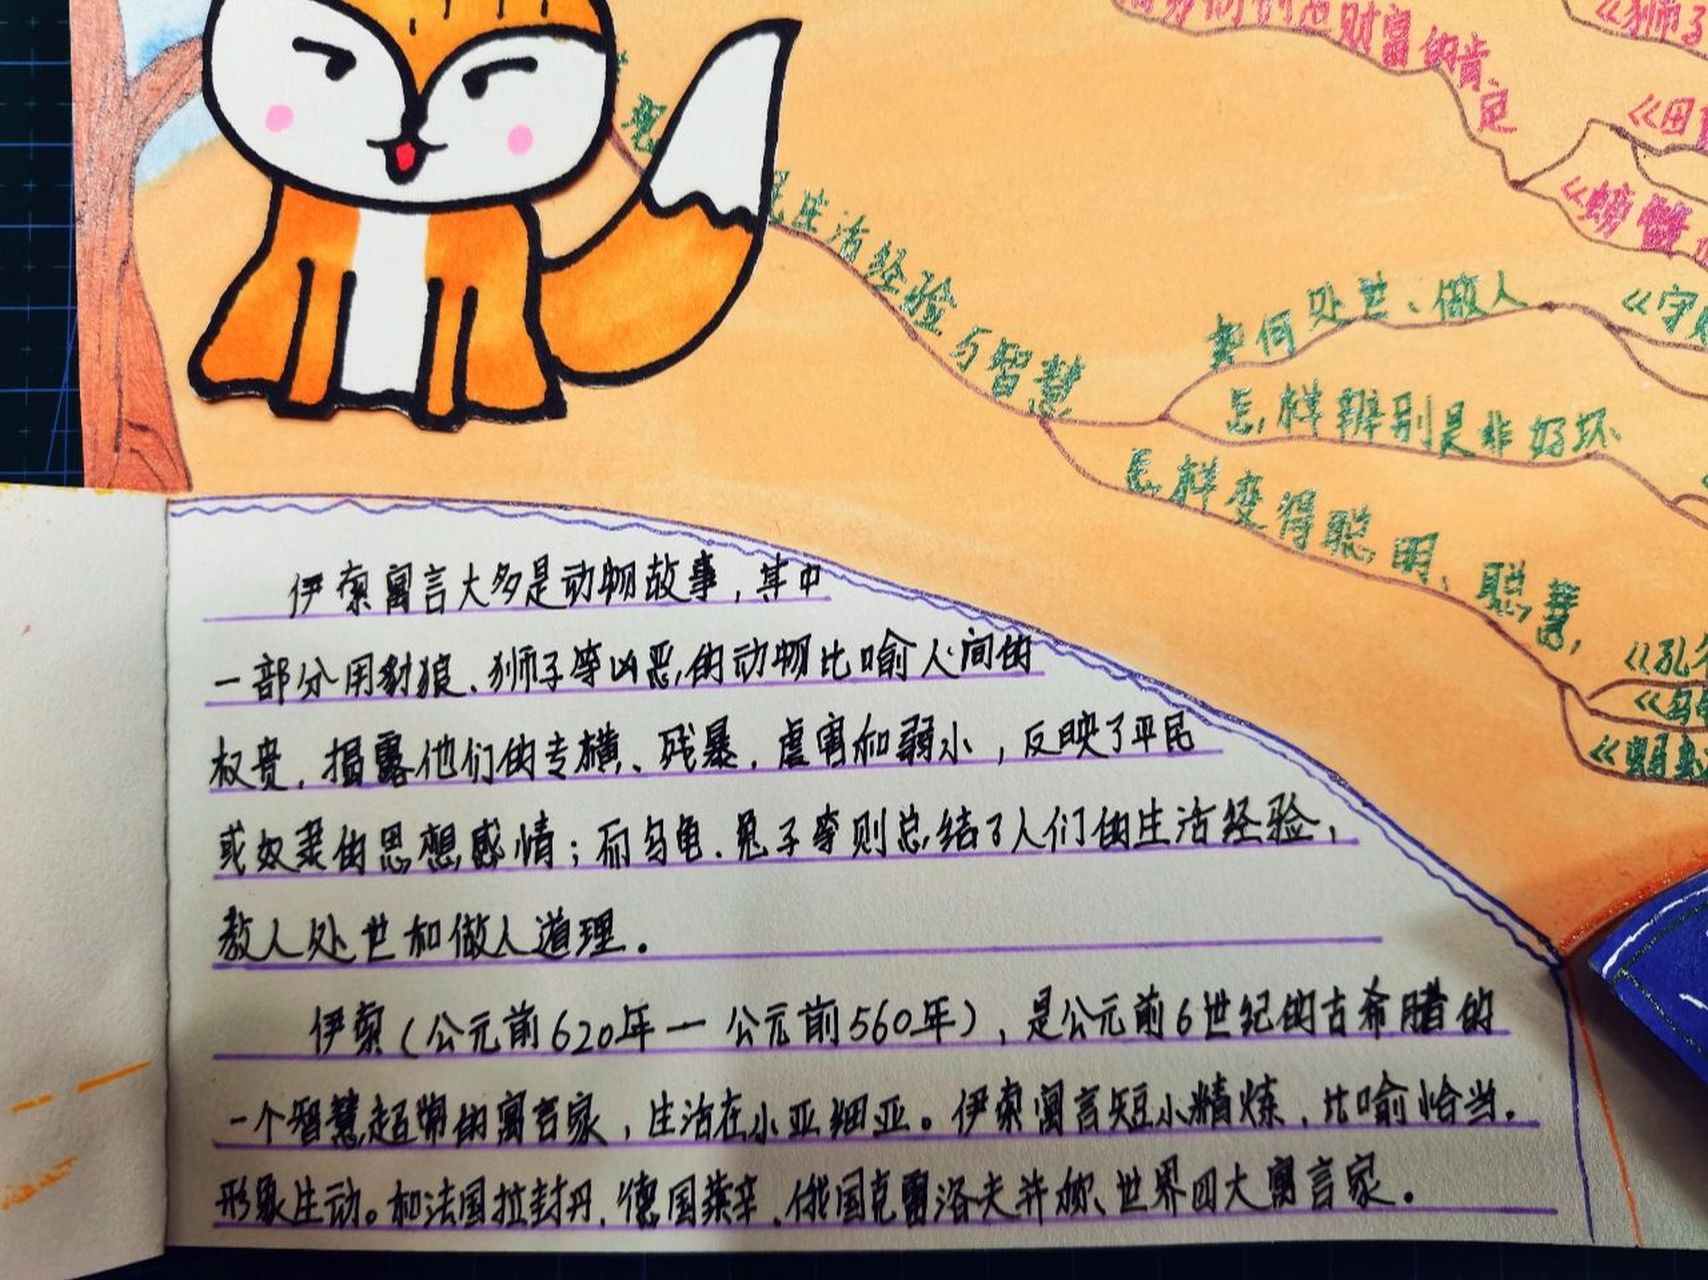 财富的肯定
《狮子
《用
《螃蟹
生活经验与智慧
如何处世、做人
《守
怎样辨别是非好坏
怎样变得聪明、聪慧,
《孔
《乌
伊索寓言大多是动物故事，其中
一部分用豺狼、狮子等凶恶的动物比喻人间的
权贵，揭露他们的专横、残暴，虐害和弱小，反映了平民
或奴隶的思想感情；而乌龟、兔子等则总结了人们的生活经验，
教人处世和做人道理。
伊索（公元前620年一公元前560年），是公元前6世纪的古希腊的
一个智慧超常的寓言家，生活在小亚细亚。伊索寓言短小精炼，比喻恰当。
形象生动。和法国拉封丹，德国莱辛，俄国克雷洛夫并称、世界四大寓言家。